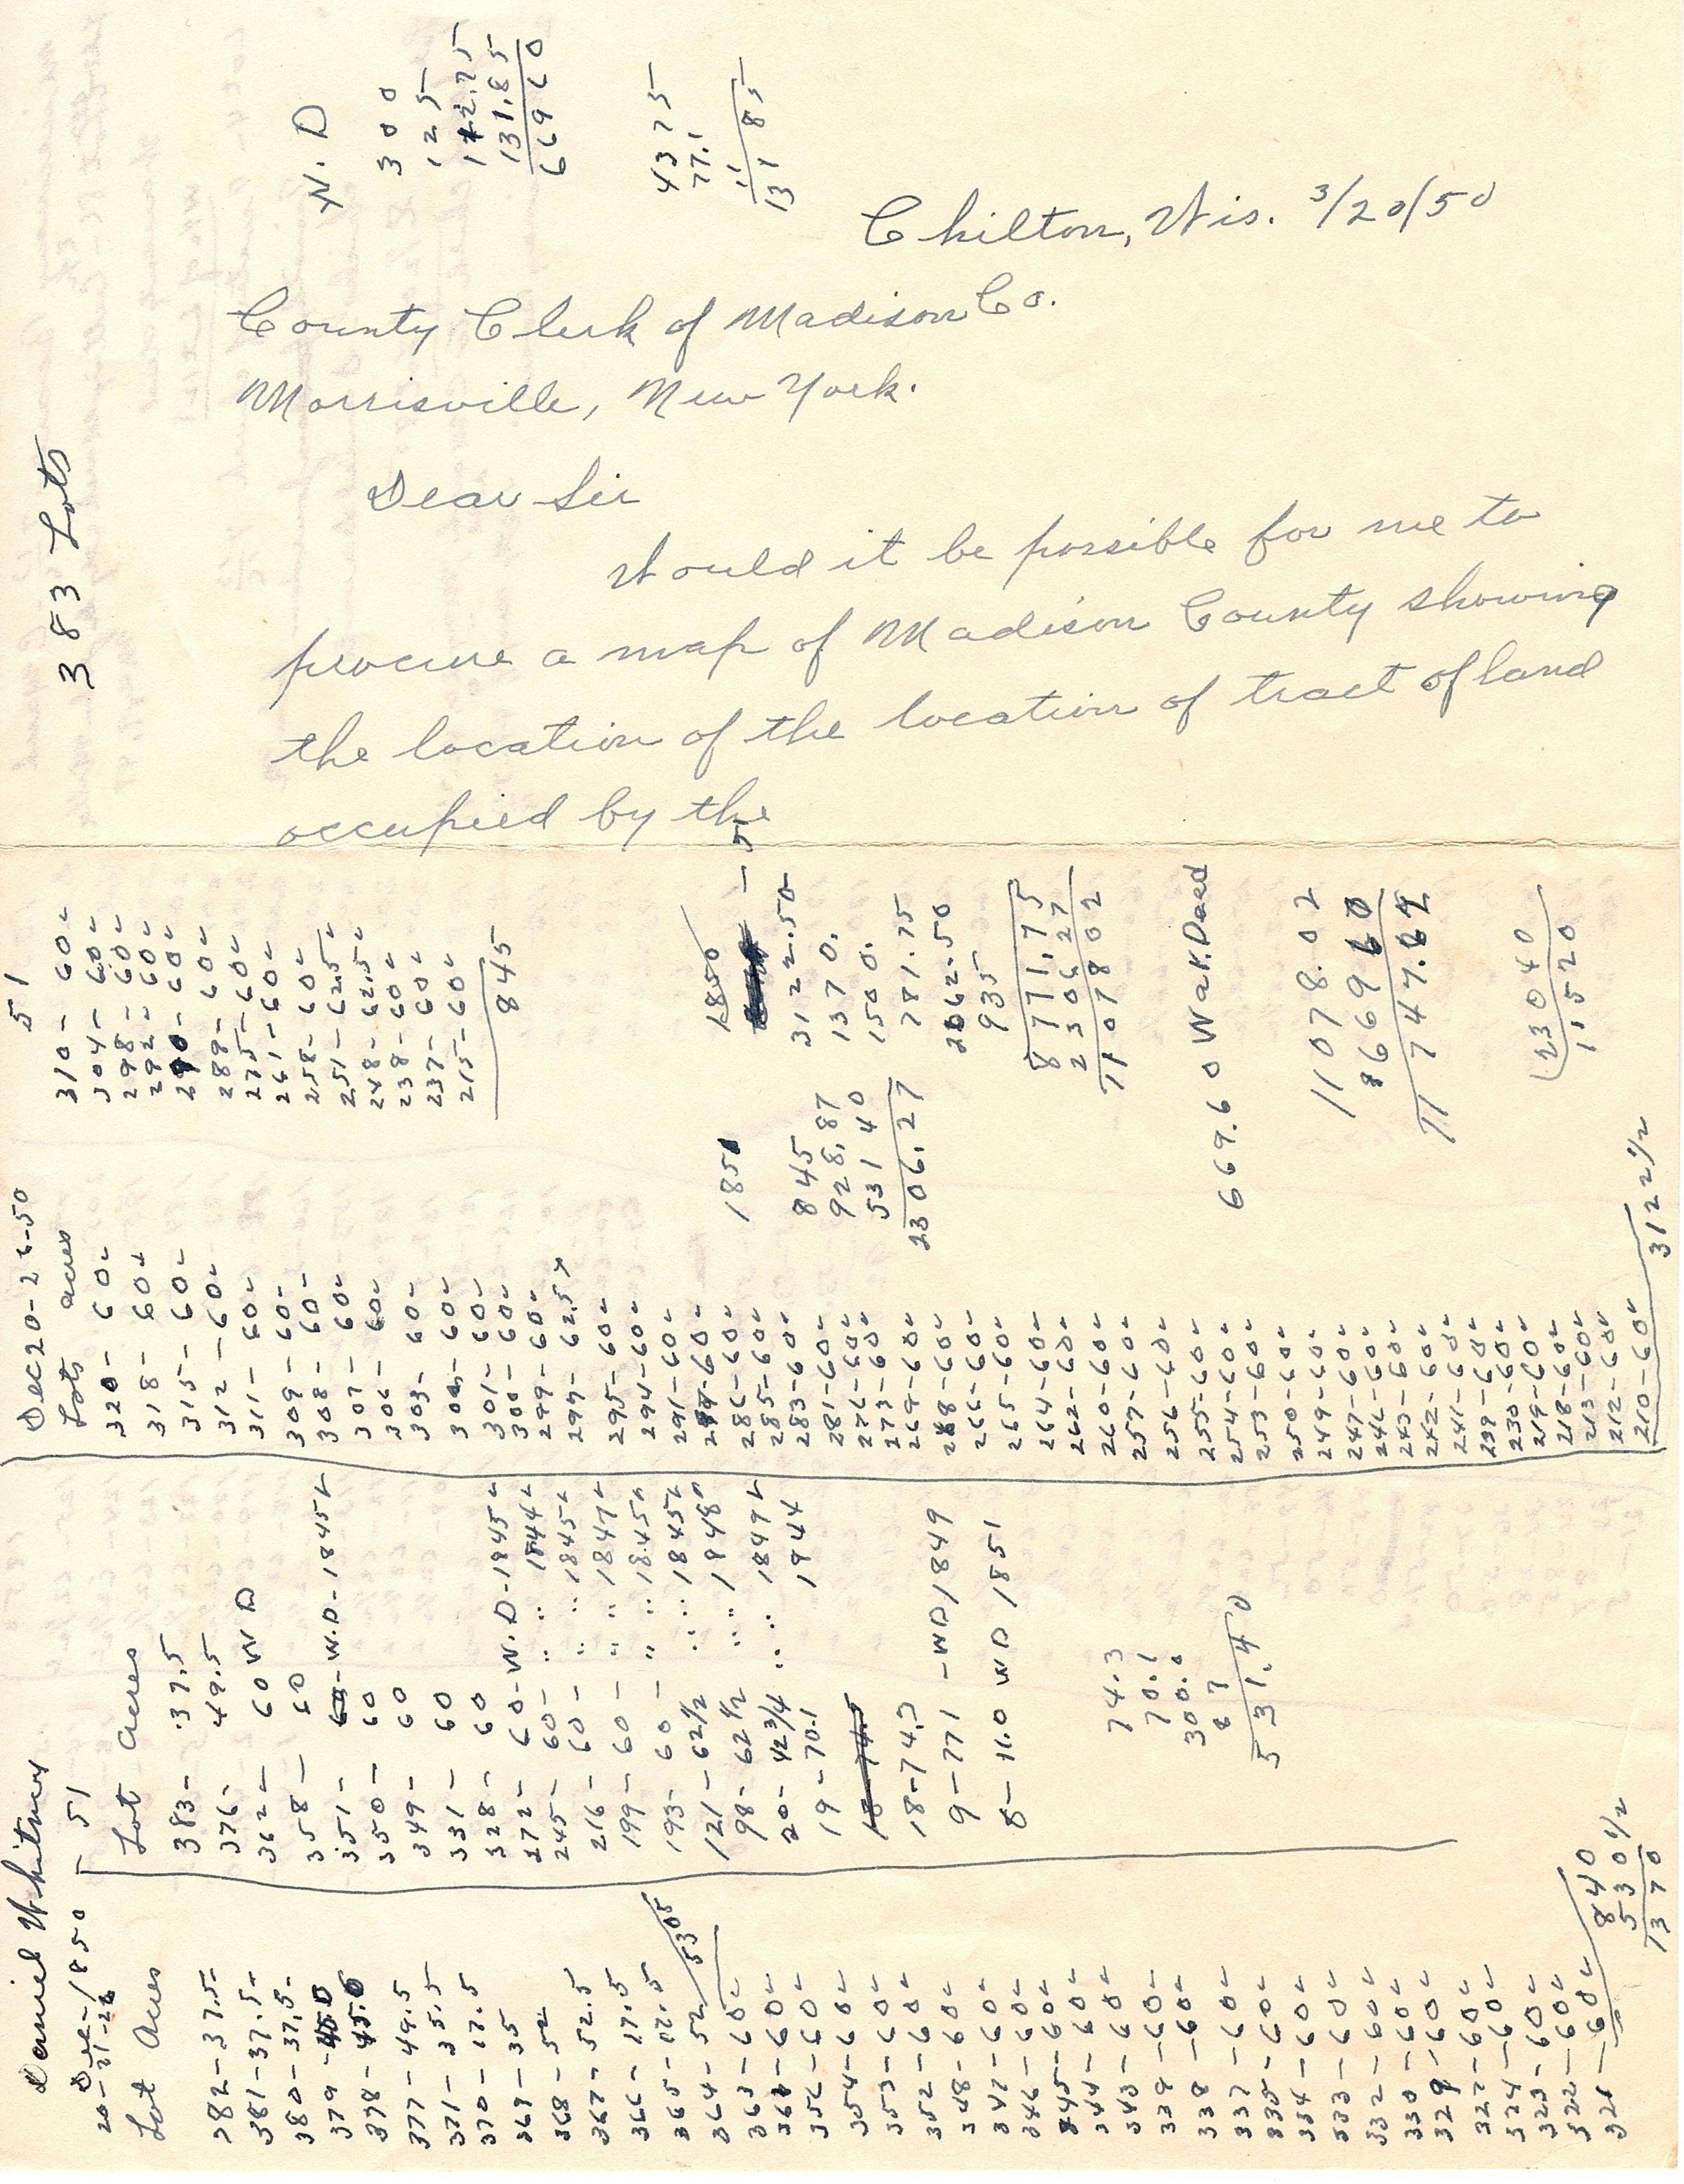 Chilton, Wis. 3/20/50
County Clerk of Madison Co.
Morrisville, New York.
Dear Sir
Would it be possible for me to
procure a map of Madison County showing
the location of the location of tract of land
occupied by the
W. D
300
125
131.85
669 60
43 75
77.1
11
131 85
383 Lots
Daniel Whitney
Dec - 1850
Lot Acres
382 - 37.5
381 - 37.5
380 - 37.5
379 -
378 -
377 - 49.5
371 - 35.5
370 - 17.5
369 - 35
368 - 52
367 - 52.5
366 - 17.5
365 - 17.5
364 - 52
5305
363 - 60
361 - 60
356 - 60
354 - 60
353 - 60
352 - 60
348 - 60
347 - 60
346 - 60
345 - 60
344 - 60
343 - 60
339 - 60
338 - 60
337 - 60
335 - 60
334 - 60
333 - 60
332 - 60
330 - 60
329 - 60
327 - 60
324 - 60
323 - 60
322 - 60
321 - 60
840
530 1/2
1370
51
Lot Acres
383 - 37.5
376 - 49.5
362 - 60 W D
358 - 60
351 - 60 - W.D - 1845
350 - 60
349 - 60
331 - 60
328 - 60
272 - 60 - W.D - 1845
245 - 60 - " " 1844
216 - 60 - " " 1845
199 - 60 - " " 1847
193 - 60 - " " 1845
121 - 62 1/2 " " 1845
98 - 62 1/2 " " 1848
20 - 42 3/4 " " 1849
19 - 70.1 1844
18 - 74.3
18 - 74.3
9 - 77.1 - WD 1849
8 - 11.0 W D 1851
74.3
70.1
300.0
87
531.40
Dec 20-26-50
Lots acres
320 - 60
318 - 60
315 - 60
312 - 60
311 - 60
309 - 60
308 - 60
307 - 60
306 - 60
303 - 60
302 - 60
301 - 60
300 - 60
299 - 60
297 - 62.5
295 - 60
294 - 60
291 - 60
287 - 60
286 - 60
285 - 60
283 - 60
281 - 60
276 - 60
273 - 60
269 - 60
268 - 60
266 - 60
265 - 60
264 - 60
262 - 60
260 - 60
257 - 60
256 - 60
255 - 60
254 - 60
253 - 60
250 - 60
249 - 60
247 - 60
246 - 60
243 - 60
242 - 60
241 - 60
239 - 60
230 - 60
219 - 60
218 - 60
213 - 60
212 - 60
210 - 60
3122 1/2
51
310 - 60
304 - 60
298 - 60
292 - 60
290 - 60
289 - 60
275 - 60
261 - 60
258 - 60
251 - 62.5
248 - 62.5
238 - 60
237 - 60
215 - 60
845
1851
845
928.87
531 40
2306.27
1850
3122.50
1370.
1500.
781.75
2062.50
935
8771.75
2306.27
11078 02
669.60 War. Deed
11078.02
669 60
11747.62
23040
1,520